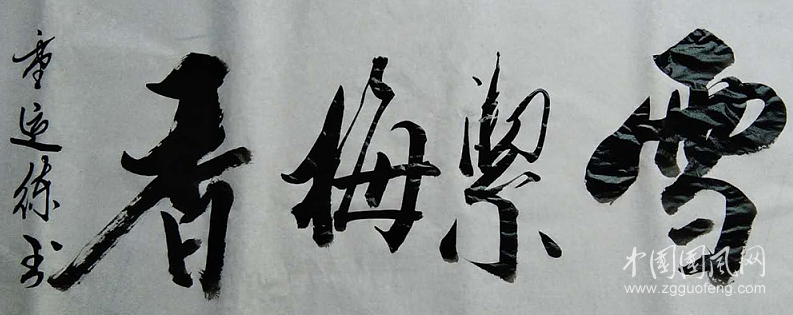 雪絜梅香
中国国风网
www.zgguofeng.com